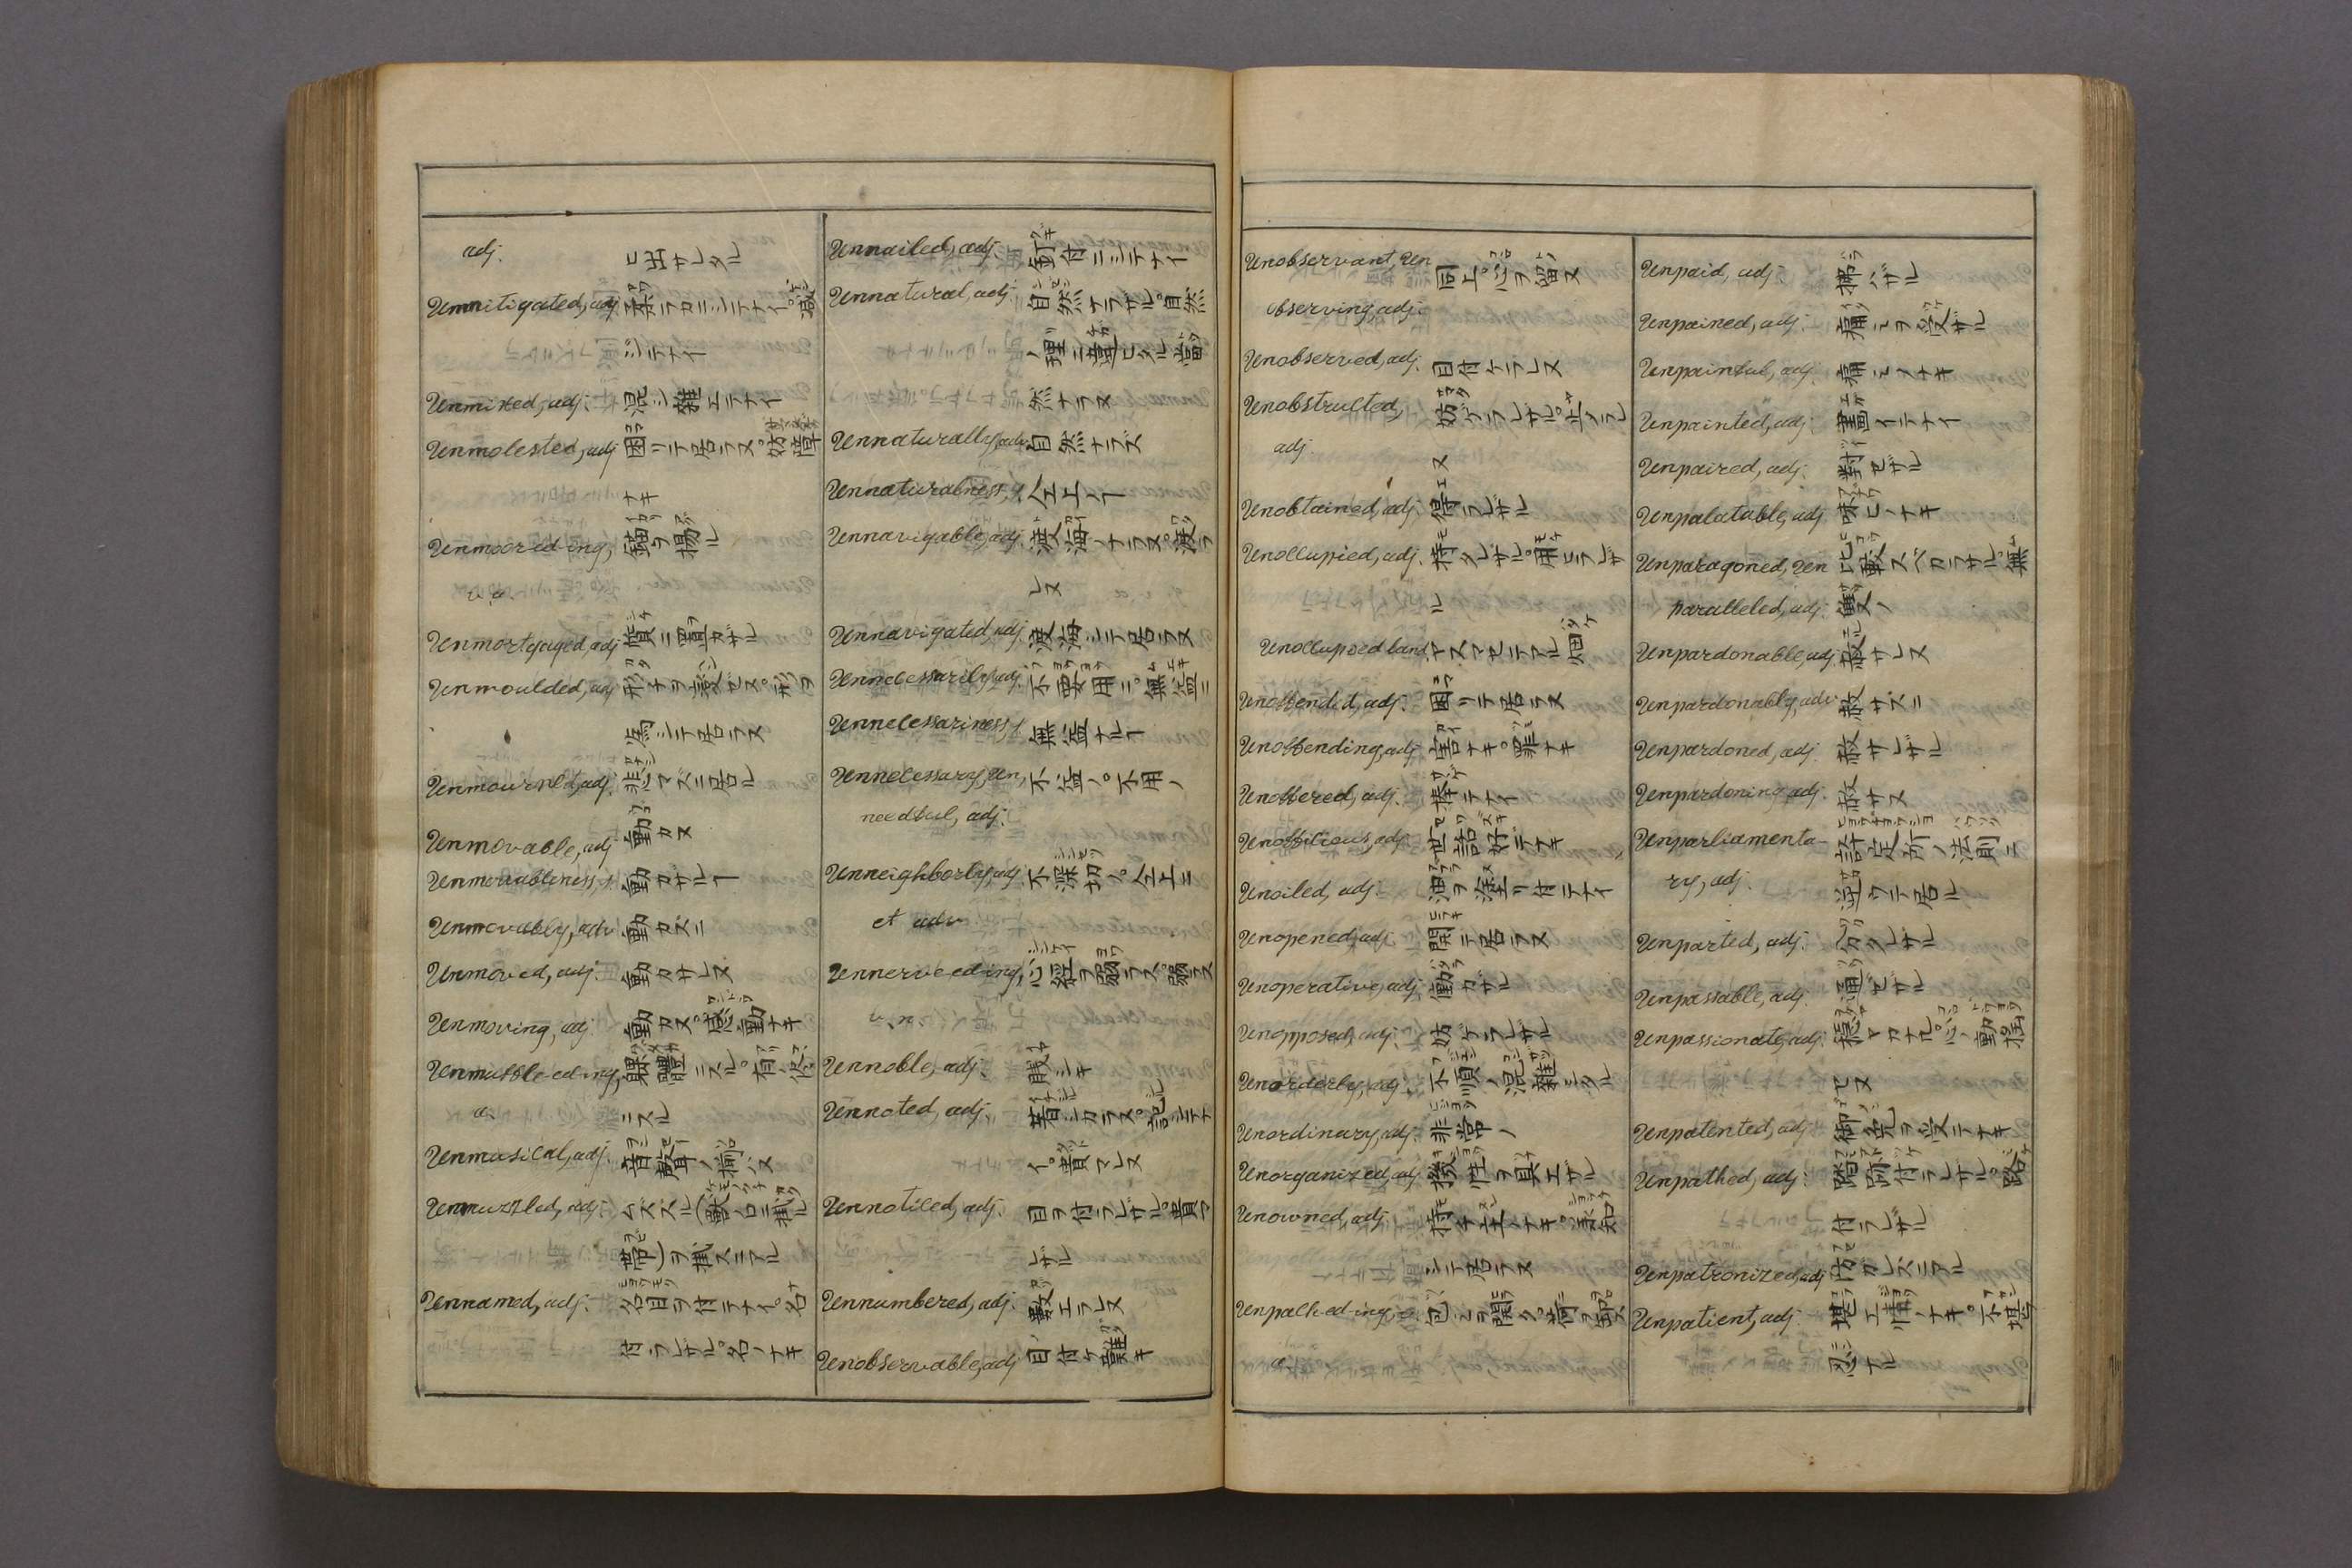 adj. ヒ出サレタル
Unmitigated, adj 柔ラカニシテナイ。減
ジテナイ
Unmixed, adj. 混ジ雑エテナイ
Unmolested, adj 困リテ居ラヌ。妨障
ナキ
Unmoored-ing, 錨ヲ揚ル
v. a.
Unmortgaged, adj 質ニ置カザル
Unmoulded, adj 形チヲ變セヌ。形ヲ
為シテ居ラヌ
Unmourned, adj. 悲マズニ居ル
Unmovable, adj 動カヌ
Unmovableness, s. 動カザルヿ
Unmovably, adv 動カズニ
Unmoved, adj. 動カサレヌ
Unmoving, adj. 動カヌ。感動ナキ
Unmuffle-ed-ing, 躶體ニスル。有
a. ニスル
Unmusical, adj. 音聲ノ揃ハヌ
Unmuzzled, adj.
ヲ掛ズニアル
Unnamed, adj. 名目ヲ付テナイ。名
付ラレザル。名ノナキ
Unnailed, adj. 釘付ニシテナイ
Unnatural, adj. 自然ナラザル。自然
ノ理ニ違ヒタル。當
然ナラヌ
Unnaturally, adv. 自然ナラズ
Unnaturalness, s. 仝上ノヿ
Unnavigable, adj. 渡海ノナラヌ。渡ラ
レヌ
Unnavigated, adj. 渡海シテ居ラヌ
Unnecessarily, adj. 不要用ニ。無益ニ
Unnecessariness, s 無益ナルヿ
Unnecessary, Un, 不益ノ。不用ノ
needful, adj.
Unneighborly, adj 不深切ノ。仝上ニ
et adv
Unnerve-ed-ing, 心經ヲ弱ラス。弱ラス
v. a.
Unnoble, adj. 賤シキ
Unnoted, adj. 著シカラヌ。記シテナ
イ。貴マレヌ
Unnoticed, adj. 目ヲ付ラレザル。貴マ
レザル
Unnumbered, adj. 數エラレヌ
Unobservable, adj 目付ケ難キ
Unobservant, Un 同上。心ヲ留ヌ
observing, adj.
Unobserved, adj. 目付ケラレヌ
Unobstructed, 妨ゲラレザル。止ラレ
adj ヌ
Unobtained, adj. 得ラレザル
Unoccupied, adj. 持タレザル。用ヒラレザ
ル
Unoccupied land マスマセテアル畑
Unoffendid, adj. 困リテ居ラヌ
Unoffending, adj 害ナキ。罪ナキ
Unoffered, adj. 捧テナイ
Unofficious, adj. 世話好デナキ
Unoiled, adj. 油ヲ塗リ付テナイ
Unopened, adj. 開テ居ラヌ
Unoperative, adj. 働カザル
Unopposed, adj. 妨ゲラレザル
Unorderly, adj. 不順ノ。混雑シタル
Unordinary, adj. 非常ノ
Unorganized, adj. 機性ヲ具エザル
Unowned, adj. 持チ主ノナキ。承知
シテ居ラヌ
Unpack-ed-ing, v. 包ミヲ開ク。荷ヲ卸ス
a.
Unpaid, adj. 拂ハザル
Unpained, adj. 痛ミヲ受ザル
Unpainful, adj. 痛ミノナキ
Unpainted, adj. 畵イテナイ
Unpaired, adj. 對セザル
Unpalatable, adj 味ヒノナキ
Unparagoned, Un 比較スベカラザル。無
paralleled, adj. 雙ノ
Unpardonable, adj. 赦サレヌ
Unpardonably, adv 赦サズニ
Unpardoned, adj. 赦サレザル
Unpardoning, adj. 赦サヌ
Unparliamenta- 評定所ノ法則ニ
ry, adj. 逆ツテ居ル
Unparted, adj. 分タレザル
Unpassable, adj. 通セザル
Unpassionate, adj. 穏ヤカナル。心ノ動揺
セヌ
Unpatented, adj 御免ヲ受テナキ
Unpathed, adj. 踏跡付ラレザル。路
付ラレザル
Unpatronized, adj
Unpatient, adj. 堪エ情ノナキ。不堪
忍ナル